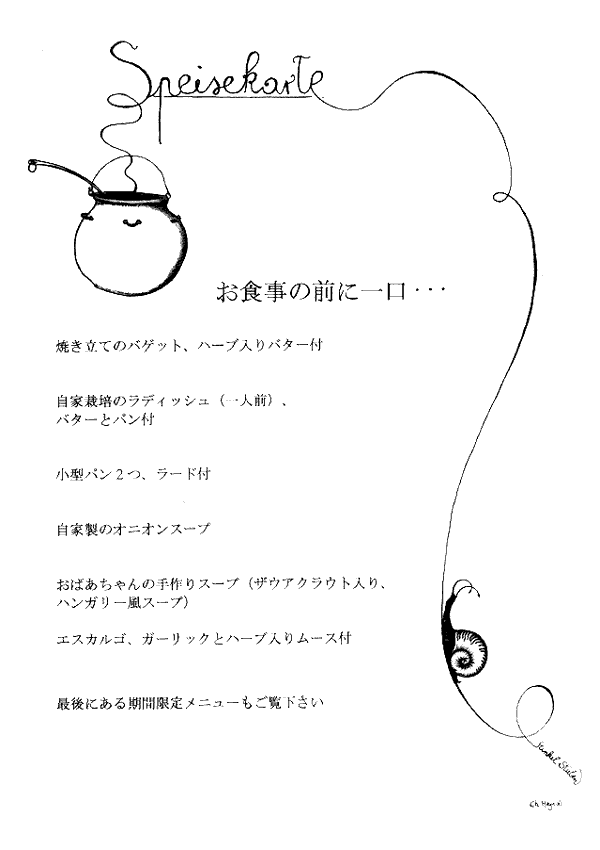 Speisekarte
お食事の前に一口・・・
焼き立てのバゲット、ハーブ入りバター付
自家栽培のラディッシュ（一人前）、
バターとパン付
小型パン２つ、ラード付
自家製のオニオンスープ
おばあちゃんの手作りスープ（ザウアクラウト入り、
ハンガリー風スープ）
エスカルゴ、ガーリックとハーブ入りムース付
最後にある期間限定メニューもご覧下さい